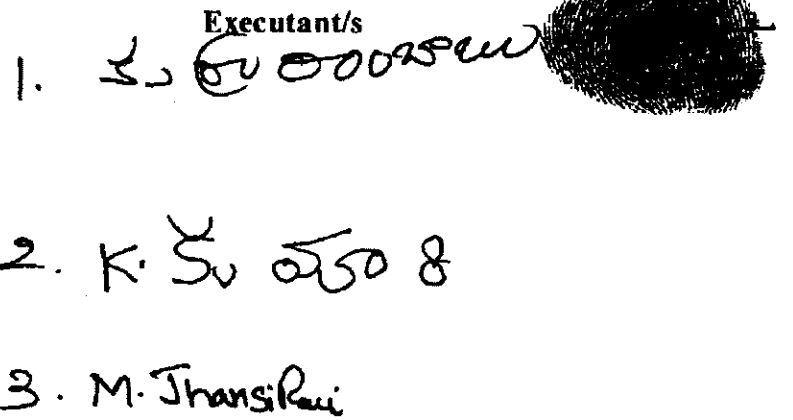 Executant/s
1.
2. K. కుమారి
3. M. Jhansi Rani